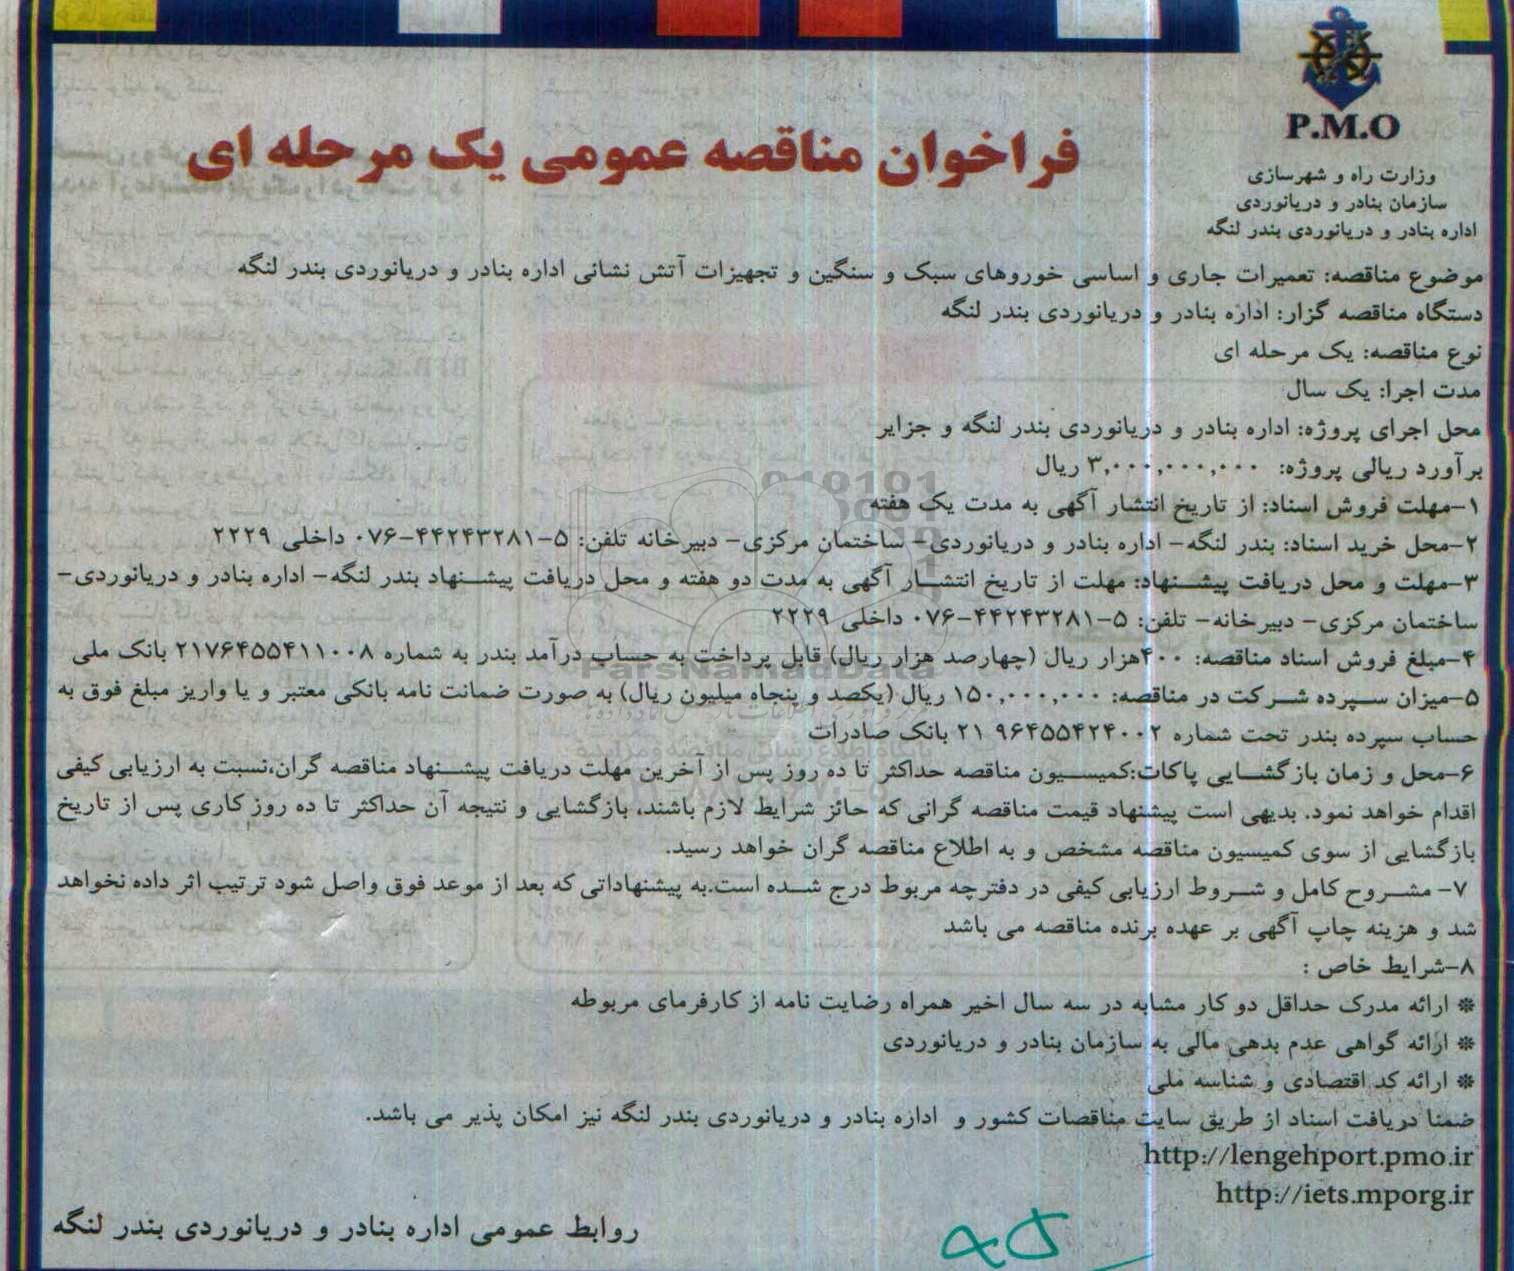 P.M.O
وزارت راه و شهرسازی
سازمان بنادر و دریانوردی
اداره بنادر و دریانوردی بندر لنگه
فراخوان مناقصه عمومی یک مرحله ای
موضوع مناقصه: تعمیرات جاری و اساسی خوروهای سبک و سنگین و تجهیزات آتش نشانی اداره بنادر و دریانوردی بندر لنگه
دستگاه مناقصه گزار: اداره بنادر و دریانوردی بندر لنگه
نوع مناقصه: یک مرحله ای
مدت اجرا: یک سال
محل اجرای پروژه: اداره بنادر و دریانوردی بندر لنگه و جزایر
برآورد ریالی پروژه: ۳,۰۰۰,۰۰۰,۰۰۰ ریال
۱-مهلت فروش اسناد: از تاریخ انتشار آگهی به مدت یک هفته
۲-محل خرید اسناد: بندر لنگه- اداره بنادر و دریانوردی- ساختمان مرکزی- دبیرخانه تلفن: ۵-۴۴۲۴۳۲۸۱-۰۷۶ داخلی ۲۲۲۹
۳-مهلت و محل دریافت پیشنهاد: مهلت از تاریخ انتشار آگهی به مدت دو هفته و محل دریافت پیشنهاد بندر لنگه- اداره بنادر و دریانوردی-
ساختمان مرکزی- دبیرخانه- تلفن: ۵-۴۴۲۴۳۲۸۱-۰۷۶ داخلی ۲۲۲۹
۴-مبلغ فروش اسناد مناقصه: ۴۰۰هزار ریال (چهارصد هزار ریال) قابل پرداخت به حساب درآمد بندر به شماره ۲۱۷۶۴۵۵۴۱۱۰۰۸ بانک ملی
ParsNamadData
۵-میزان سپرده شرکت در مناقصه: ۱۵۰,۰۰۰,۰۰۰ ریال (یکصد و پنجاه میلیون ریال) به صورت ضمانت نامه بانکی معتبر و یا واریز مبلغ فوق به
حساب سپرده بندر تحت شماره ۹۶۴۵۵۴۲۴۰۰۲ ۲۱ بانک صادرات
۶-محل و زمان بازگشایی پاکات:کمیسیون مناقصه حداکثر تا ده روز پس از آخرین مهلت دریافت پیشنهاد مناقصه گران،نسبت به ارزیابی کیفی
اقدام خواهد نمود. بدیهی است پیشنهاد قیمت مناقصه گرانی که حائز شرایط لازم باشند، بازگشایی و نتیجه آن حداکثر تا ده روز کاری پس از تاریخ
بازگشایی از سوی کمیسیون مناقصه مشخص و به اطلاع مناقصه گران خواهد رسید.
۷- مشروح کامل و شروط ارزیابی کیفی در دفترچه مربوط درج شده است.به پیشنهاداتی که بعد از موعد فوق واصل شود ترتیب اثر داده نخواهد
شد و هزینه چاپ آگهی بر عهده برنده مناقصه می باشد
۸-شرایط خاص :
* ارائه مدرک حداقل دو کار مشابه در سه سال اخیر همراه رضایت نامه از کارفرمای مربوطه
* ارائه گواهی عدم بدهی مالی به سازمان بنادر و دریانوردی
* ارائه کد اقتصادی و شناسه ملی
ضمنا دریافت اسناد از طریق سایت مناقصات کشور و اداره بنادر و دریانوردی بندر لنگه نیز امکان پذیر می باشد.
http://lengehport.pmo.ir
http://iets.mporg.ir
روابط عمومی اداره بنادر و دریانوردی بندر لنگه